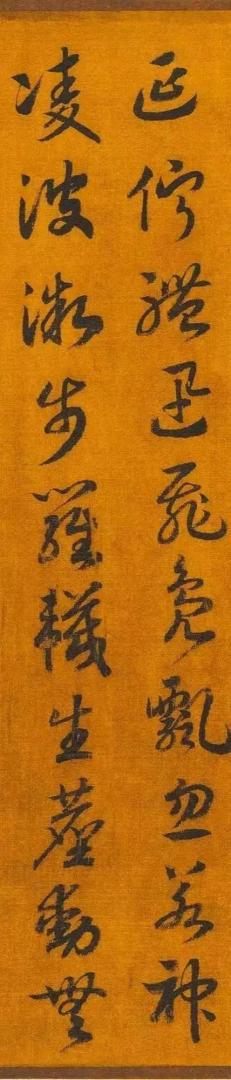 延佇體迅飛鳧飄忽若神
凌波微步羅襪生塵動無